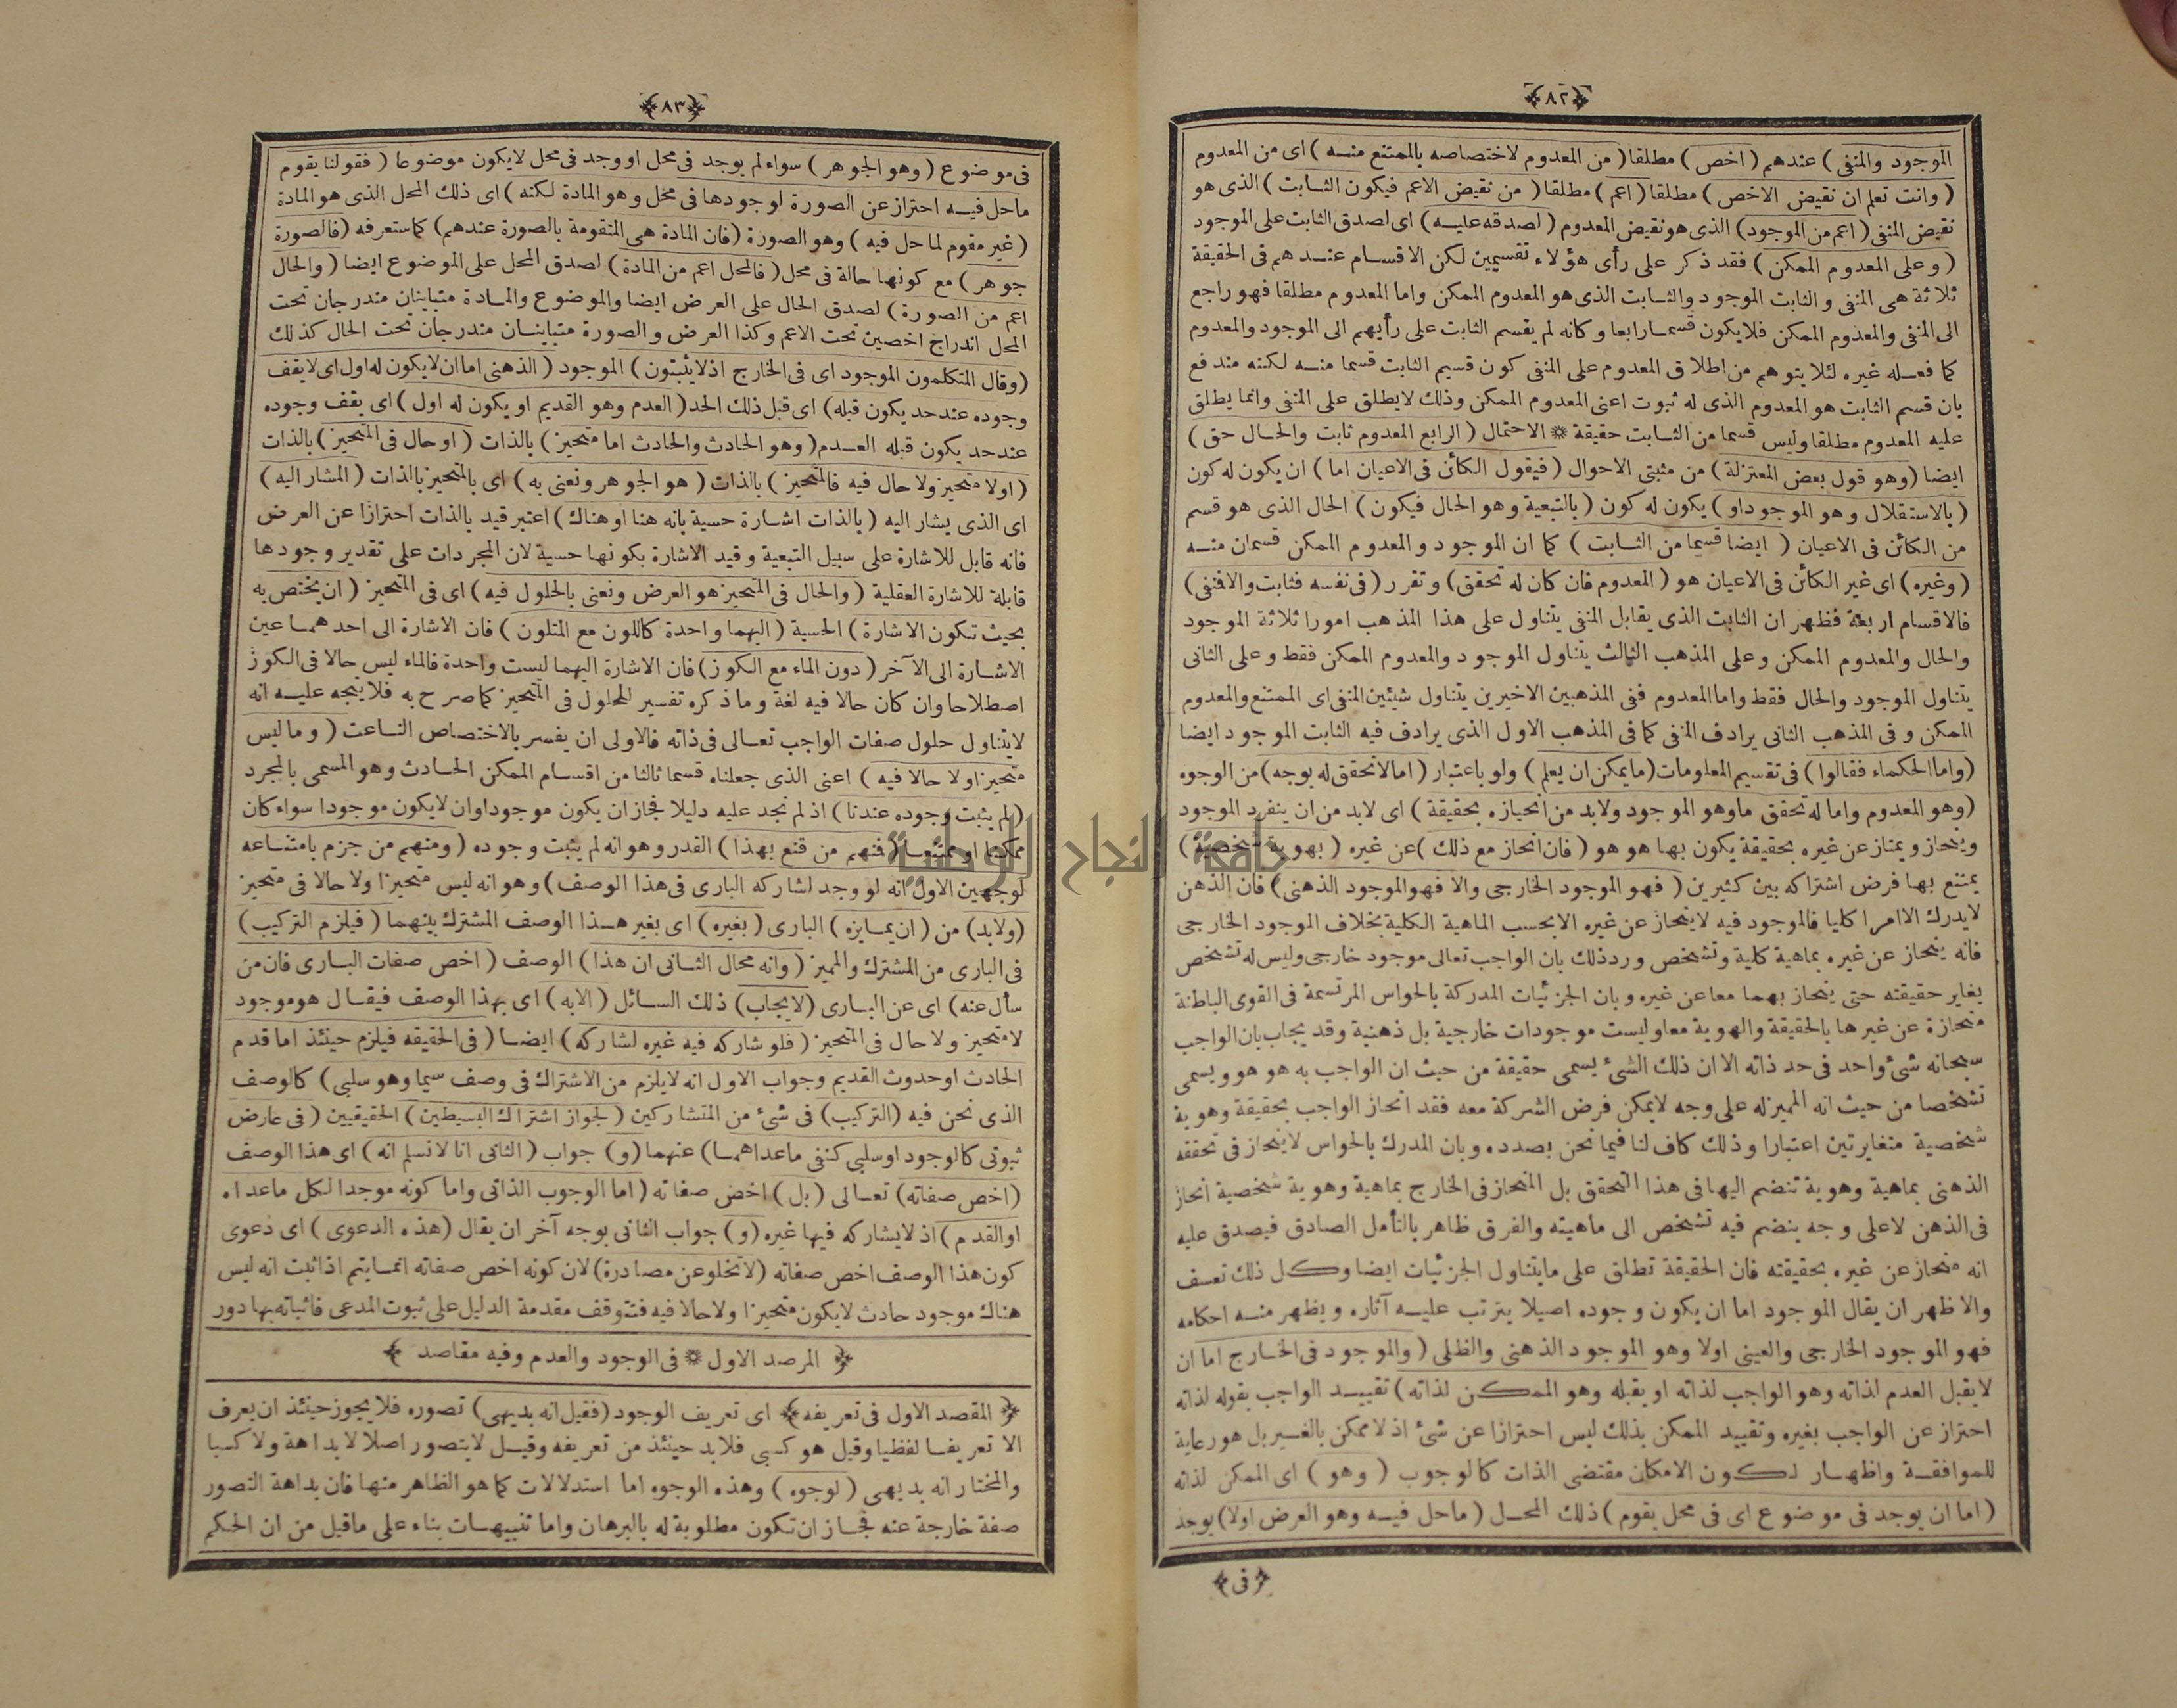 ﴿٨٢﴾
الموجود والمنفى) عندهم (اخص) مطلقا (من المعدوم لاختصاصه بالممتنع منه) اى من المعدوم
(وانت تعلم ان نقيض الاخص) مطلقا (اعم) مطلقا (من نقيض الاعم فيكون الثابت) الذى هو
نقيض المنفى (اعم من الموجود) الذى هو نقيض المعدوم (لصدقه عليه) اى لصدق الثابت على الموجود
(وعلى المعدوم الممكن) فقد ذكر على رأى هؤلاء تقسيمين لكن الاقسام عندهم فى الحقيقة
ثلاثة هى المنفى والثابت الموجود والثابت الذى هو المعدوم الممكن واما المعدوم مطلقا فهو راجع
الى المنفى والمعدوم الممكن فلا يكون قسما رابعا وكانه لم يقسم الثابت على رأيهم الى الموجود والمعدوم
كما فعله غيره لئلا يتوهم من اطلاق المعدوم على المنفى كون قسيم الثابت قسما منه لكنه مندفع
بان قسم الثابت هو المعدوم الذى له ثبوت اعنى المعدوم الممكن وذلك لا يطلق على المنفى وانما يطلق
عليه المعدوم مطلقا وليس قسما من الثابت حقيقة * الاحتمال (الرابع المعدوم ثابت والحال حق)
ايضا (وهو قول بعض المعتزلة) من مثبتى الاحوال (فيقول الكائن فى الاعيان اما) ان يكون له كون
(بالاستقلال وهو الموجود او) يكون له كون (بالتبعية وهو الحال فيكون) الحال الذى هو قسم
من الكائن فى الاعيان (ايضا قسما من الثابت) كما ان الموجود والمعدوم الممكن قسمان منه
(وغيره) اى غير الكائن فى الاعيان هو (المعدوم فان كان له تحقق) وتقرر (فى نفسه فثابت والا فمنفى)
فالاقسام اربعة فظهر ان الثابت الذى يقابل المنفى يتناول على هذا المذهب امورا ثلاثة الموجود
والحال والمعدوم الممكن وعلى المذهب الثالث يتناول الموجود والمعدوم الممكن فقط وعلى الثانى
يتناول الموجود والحال فقط واما المعدوم ففى المذهبين الاخيرين يتناول شيئين المنفى اى الممتنع والمعدوم
الممكن وفى المذهب الثانى يرادف المنفى كما فى المذهب الاول الذى يرادف فيه الثابت الموجود ايضا
(واما الحكماء فقالوا) فى تقسيم المعلومات (ما يمكن ان يعلم) ولو باعتبار (اما لا تحقق له بوجه) من الوجوه
(وهو المعدوم واما له تحقق ما وهو الموجود ولا بد من انحيازه بحقيقة) اى لا بد من ان ينفرد الموجود
وينحاز ويمتاز عن غيره بحقيقة يكون بها هو هو (فان انحاز مع ذلك) عن غيره (بهوية شخصية)
يمتنع بها فرض اشتراكه بين كثيرين (فهو الموجود الخارجى والا فهو الموجود الذهنى) فان الذهن
لا يدرك الا امرا كليا فالموجود فيه لا ينحاز عن غيره الا بحسب الماهية الكلية بخلاف الموجود الخارجى
فانه ينحاز عن غيره بماهية كلية وتشخص ورد ذلك بان الواجب تعالى موجود خارجى وليس له تشخص
يغاير حقيقته حتى ينحاز بهما معا عن غيره وبان الجزئيات المدركة بالحواس المرتسمة فى القوى الباطنة
منحازة عن غيرها بالحقيقة والهوية معا وليست موجودات خارجية بل ذهنية وقد يجاب بان الواجب
سبحانه شئ واحد فى حد ذاته الا ان ذلك الشئ يسمى حقيقة من حيث ان الواجب به هو هو ويسمى
تشخصا من حيث انه المميز له على وجه لا يمكن فرض الشركة معه فقد انحاز الواجب بحقيقة وهوية
شخصية متغايرتين اعتبارا وذلك كاف لنا فيما نحن بصدده وبان المدرك بالحواس لا ينحاز فى تحققه
الذهنى بماهية وهوية تنضم اليها فى هذا التحقق بل المنحاز فى الخارج بماهية وهوية شخصية انحاز
فى الذهن لا على وجه ينضم فيه تشخص الى ماهيته والفرق ظاهر بالتأمل الصادق فيصدق عليه
انه منحاز عن غيره بحقيقته فان الحقيقة تطلق على ما يتناول الجزئيات ايضا وكل ذلك تعسف
والاظهر ان يقال الموجود اما ان يكون وجوده اصيلا يترتب عليه آثاره ويظهر منه احكامه
فهو الموجود الخارجى والعينى اولا وهو الموجود الذهنى والظلى (والموجود فى الخارج اما ان
لا يقبل العدم لذاته وهو الواجب لذاته او يقبله وهو الممكن لذاته) تقييد الواجب بقوله لذاته
احتراز عن الواجب بغيره وتقييد الممكن بذلك ليس احترازا عن شئ اذ لا ممكن بالغير بل هو رعاية
للموافقة واظهار لكون الامكان مقتضى الذات كالوجوب (وهو) اى الممكن لذاته
(اما ان يوجد فى موضوع اى فى محل يقوم) ذلك المحل (ما حل فيه وهو العرض اولا) يوجد
﴿فى﴾
﴿٨٣﴾
فى موضوع (وهو الجوهر) سواء لم يوجد فى محل او وجد فى محل لا يكون موضوعا (فقولنا يقوم
ما حل فيه احتراز عن الصورة لوجودها فى محل وهو المادة لكنه) اى ذلك المحل الذى هو المادة
(غير مقوم لما حل فيه) وهو الصورة (فان المادة هى المتقومة بالصورة عندهم) كما ستعرفه (فالصورة
جوهر) مع كونها حالة فى محل (فالمحل اعم من المادة) لصدق المحل على الموضوع ايضا (والحال
اعم من الصورة) لصدق الحال على العرض ايضا والموضوع والمادة متباينان مندرجان تحت
المحل اندراج اخصين تحت الاعم وكذا العرض والصورة متباينان مندرجان تحت الحال كذلك
(وقال المتكلمون الموجود اى فى الخارج اذ لا يثبتون) الموجود (الذهنى اما ان لا يكون له اول اى لا يقف
وجوده عند حد يكون قبله) اى قبل ذلك الحد (العدم وهو القديم او يكون له اول) اى يقف وجوده
عند حد يكون قبله العدم (وهو الحادث والحادث اما متحيز) بالذات (او حال فى المتحيز) بالذات
(او لا متحيز ولا حال فيه فالمتحيز) بالذات (هو الجوهر ونعنى به) اى بالمتحيز بالذات (المشار اليه)
اى الذى يشار اليه (بالذات اشارة حسية بانه هنا او هناك) اعتبر قيد بالذات احترازا عن العرض
فانه قابل للاشارة على سبيل التبعية وقيد الاشارة بكونها حسية لان المجردات على تقدير وجودها
قابلة للاشارة العقلية (والحال فى المتحيز هو العرض ونعنى بالحلول فيه) اى فى المتحيز (ان يختص به
بحيث تكون الاشارة) الحسية (اليهما واحدة كاللون مع المتلون) فان الاشارة الى احدهما عين
الاشارة الى الآخر (دون الماء مع الكوز) فان الاشارة اليهما ليست واحدة فالماء ليس حالا فى الكوز
اصطلاحا وان كان حالا فيه لغة وما ذكره تفسير للحلول فى المتحيز كما صرح به فلا يتجه عليه انه
لا يتناول حلول صفات الواجب تعالى فى ذاته فالاولى ان يفسر بالاختصاص الناعت (وما ليس
متحيزا ولا حالا فيه) اعنى الذى جعلناه قسما ثالثا من اقسام الممكن الحادث وهو المسمى بالمجرد
(لم يثبت وجوده عندنا) اذ لم نجد عليه دليلا فجاز ان يكون موجودا وان لا يكون موجودا سواء كان
ممكنا او ممتنعا (فمنهم من قنع بهذا) القدر وهو انه لم يثبت وجوده (ومنهم من جزم بامتناعه
لوجهين الاول انه لو وجد لشاركه البارى فى هذا الوصف) وهو انه ليس متحيزا ولا حالا فى متحيز
(ولابد) من (ان يمايزه) البارى (بغيره) اى بغير هذا الوصف المشترك بينهما (فيلزم التركيب)
فى البارى من المشترك والمميز (وانه محال الثانى ان هذا) الوصف (اخص صفات البارى فان من
سأل عنه) اى عن البارى (لا يجاب) ذلك السائل (الا به) اى بهذا الوصف فيقال هو موجود
لا متحيز ولا حال فى المتحيز (فلو شاركه فيه غيره لشاركه) ايضا (فى الحقيقه فيلزم حينئذ اما قدم
الحادث او حدوث القديم وجواب الاول انه لا يلزم من الاشتراك فى وصف سيما وهو سلبى) كالوصف
الذى نحن فيه (التركيب) فى شئ من المتشاركين (لجواز اشتراك البسيطين) الحقيقيين (فى عارض
ثبوتى كالوجود او سلبى كنفى ما عداهما) عنهما (و) جواب (الثانى انا لا نسلم انه) اى هذا الوصف
(اخص صفاته) تعالى (بل) اخص صفاته (اما الوجوب الذاتى واما كونه موجدا لكل ما عداه
او القدم) اذ لا يشاركه فيها غيره (و) جواب الثانى بوجه آخر ان يقال (هذه الدعوى) اى دعوى
كون هذا الوصف اخص صفاته (لا تخلو عن مصادرة) لان كونه اخص صفاته انما يتم اذا ثبت انه ليس
هناك موجود حادث لا يكون متحيزا ولا حالا فيه فتوقف مقدمة الدليل على ثبوت المدعى فاثباته بها دور
﴿المرصد الاول * فى الوجود والعدم وفيه مقاصد﴾
﴿المقصد الاول فى تعريفه﴾ اى تعريف الوجود (فقيل انه بديهى) تصوره فلا يجوز حينئذ ان يعرف
الا تعريفا لفظيا وقيل هو كسبى فلابد حينئذ من تعريفه وقيل لا يتصور اصلا لا بداهة ولا كسبا
والمختار انه بديهى (لوجوه) وهذه الوجوه اما استدلالات كما هو الظاهر منها فان بداهة التصور
صفة خارجة عنه فجاز ان تكون مطلوبة له بالبرهان واما تنبيهات بناء على ما قيل من ان الحكم
جامعة النجاح الوطنية